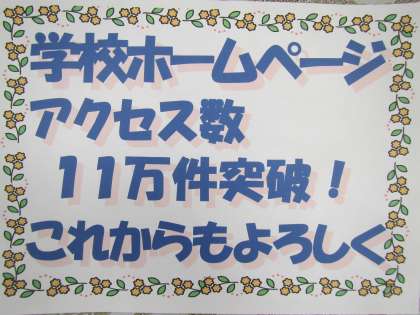 学校ホームページ
アクセス数
11万件突破！
これからもよろしく